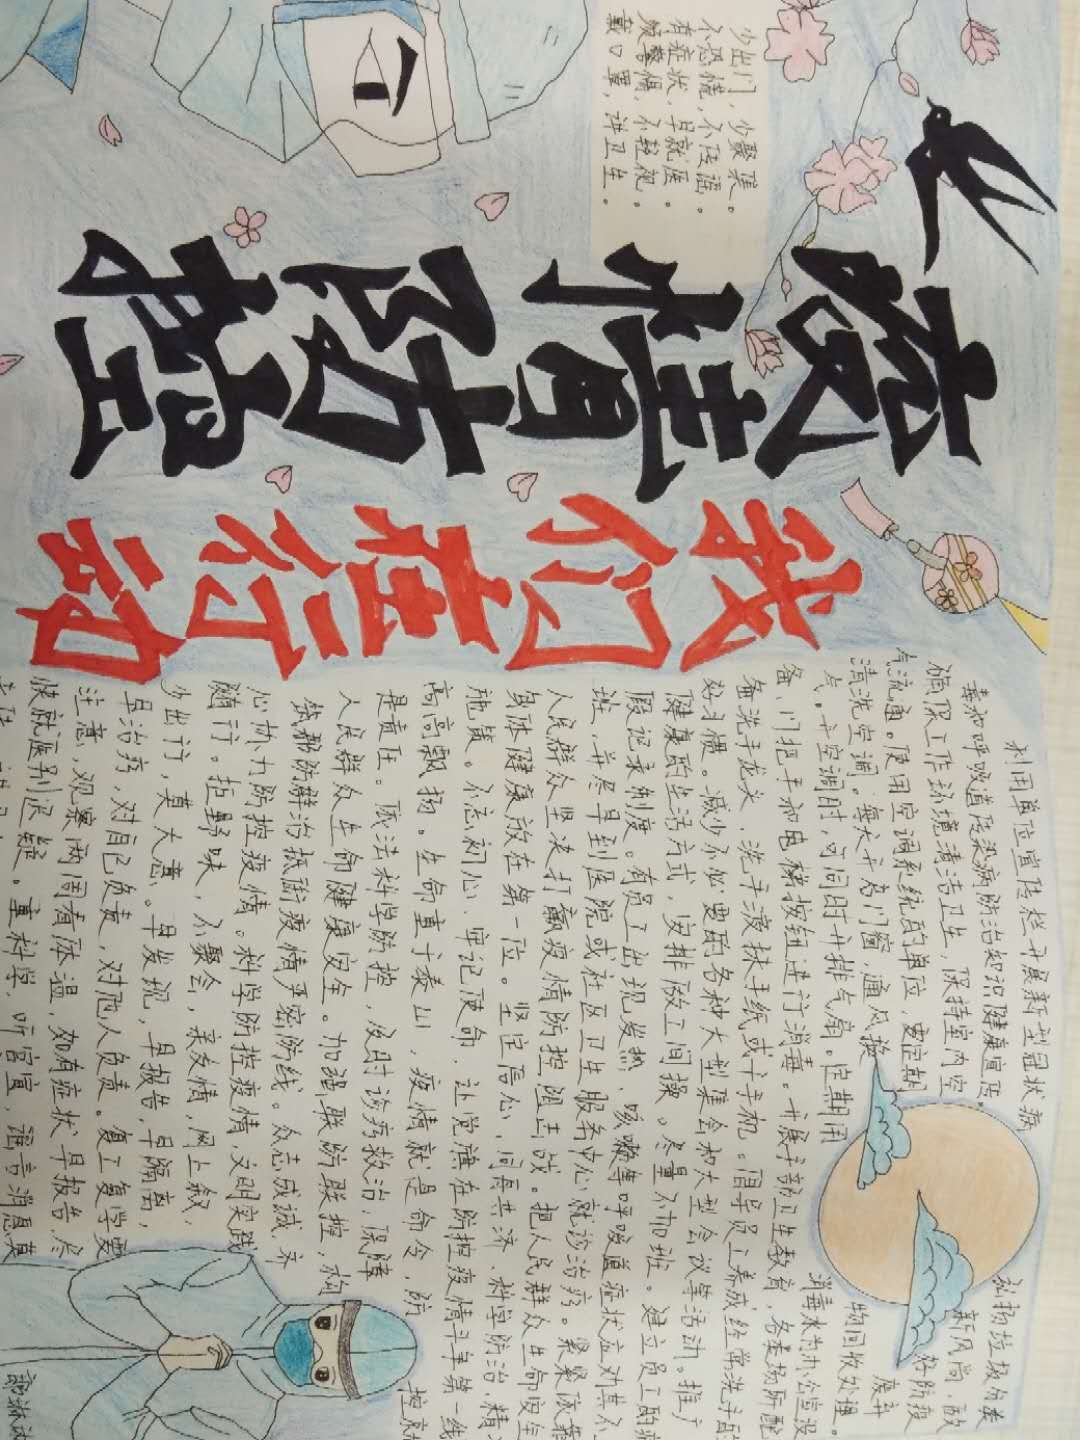 少出门，少聚集。
不恐慌，不传谣。
有症状，早就医。
须警惕，不轻视。
戴口罩，讲卫生。
疫情防控
我们在行动
利用单位宣传栏开展新型冠状病
毒和呼吸道传染病防治知识健康宣传。
确保工作环境清洁卫生，保持室内空
气流通。使用空调系统的单位，要定期
清洗空调。每天开启门窗，通风换
气。开空调时，可同时开排气扇。定期用
备、门把手和电梯按钮进行消毒。开展手部卫生教育，各类场所配
备洗手龙头、洗手液抹手纸或干手机。倡导员工养成经常洗手的
好习惯。减少不必要的各种大型集会和大型会议等活动。推广
健康的生活方式，安排做工间操。尽量不加班。建立员工的病
假记录制度。有员工出现发热、咳嗽等呼吸道症状应劝其
班，并尽早到医院或社区卫生服务中心就诊治病。紧紧依靠
人民群众坚决打赢疫情防控阻击战。把人民群众生命安全
身体健康放在第一位。坚定信心、同舟共济、科学防治、精
施策。不忘初心、牢记使命，让党旗在防控疫情斗争第一线
高高飘扬。生命重于泰山，疫情就是命令，防
是责任。依法科学防控，及时诊疗救治，保障
人民群众生命健康安全。加强联防联控，构
筑群防群治抵御疫情严密防线。众志成诚，齐
心协力防控疫情。科学防控疫情文明实践
随行。拒野味，不聚会，亲友情，网上叙，
少出行，莫大意。早发现，早报告，早隔离，
早治疗，对自己负责，对他人负责。复工复学要
注意，观察两周有体温，如有症状早报告，尽
快就医别迟疑。重科学，听官宣，谣言消息莫
弘扬垃圾分类
新风尚，做
好防疫
废弃
物回收处理。